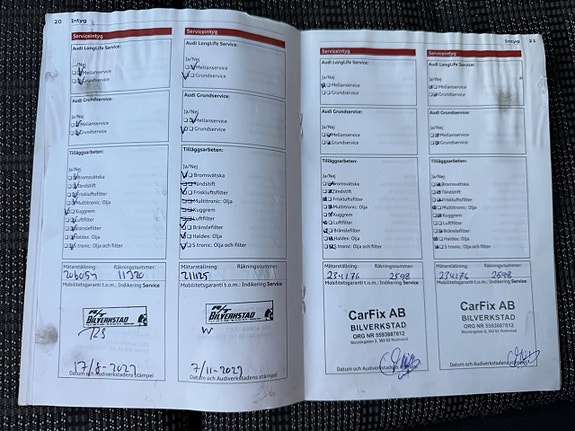 20 Intyg
Serviceintyg
Audi LongLife Service:
Ja/Nej
Mellanservice
Grundservice
Audi Grundservice:
Ja/Nej
Mellanservice
Grundservice
Tilläggsarbeten:
Ja/Nej
Bromsvätska
Tändstift
Friskluftsfilter
Multitronic: Olja
Kuggrem
Luftfilter
Bränslefilter
Haldex: Olja
S tronic: Olja och filter
Mätarställning: Räkningsnummer:
206054 11320
Mobilitetsgaranti t.o.m.: Indikering Service
BILVERKSTAD
17/8-2021
Datum och Audiverkstadens stämpel
Serviceintyg
Audi LongLife Service:
Ja/Nej
Mellanservice
Grundservice
Audi Grundservice:
Ja/Nej
Mellanservice
Grundservice
Tilläggsarbeten:
Ja/Nej
Bromsvätska
Tändstift
Friskluftsfilter
Multitronic: Olja
Kuggrem
Luftfilter
Bränslefilter
Haldex: Olja
S tronic: Olja och filter
Mätarställning: Räkningsnummer:
Mobilitetsgaranti t.o.m.: Indikering Service
BILVERKSTAD
Datum och Audiverkstadens stämpel
Intyg 21
Serviceintyg
Audi LongLife Service:
Ja/Nej
Mellanservice
Grundservice
Audi Grundservice:
Ja/Nej
Mellanservice
Grundservice
Tilläggsarbeten:
Ja/Nej
Bromsvätska
Tändstift
Friskluftsfilter
Multitronic: Olja
Kuggrem
Luftfilter
Bränslefilter
Haldex: Olja
S tronic: Olja och filter
Mätarställning: Räkningsnummer:
234176 2598
Mobilitetsgaranti t.o.m.: Indikering Service
CarFix AB
BILVERKSTAD
ORG NR 5593887812
Datum och Audiverkstadens stämpel
Serviceintyg
Audi LongLife Service:
Ja/Nej
Mellanservice
Grundservice
Audi Grundservice:
Ja/Nej
Mellanservice
Grundservice
Tilläggsarbeten:
Ja/Nej
Bromsvätska
Tändstift
Friskluftsfilter
Multitronic: Olja
Kuggrem
Luftfilter
Bränslefilter
Haldex: Olja
S tronic: Olja och filter
Mätarställning: Räkningsnummer:
234176 2598
Mobilitetsgaranti t.o.m.: Indikering Service
CarFix AB
BILVERKSTAD
ORG NR 5593887812
Datum och Audiverkstadens stämpel